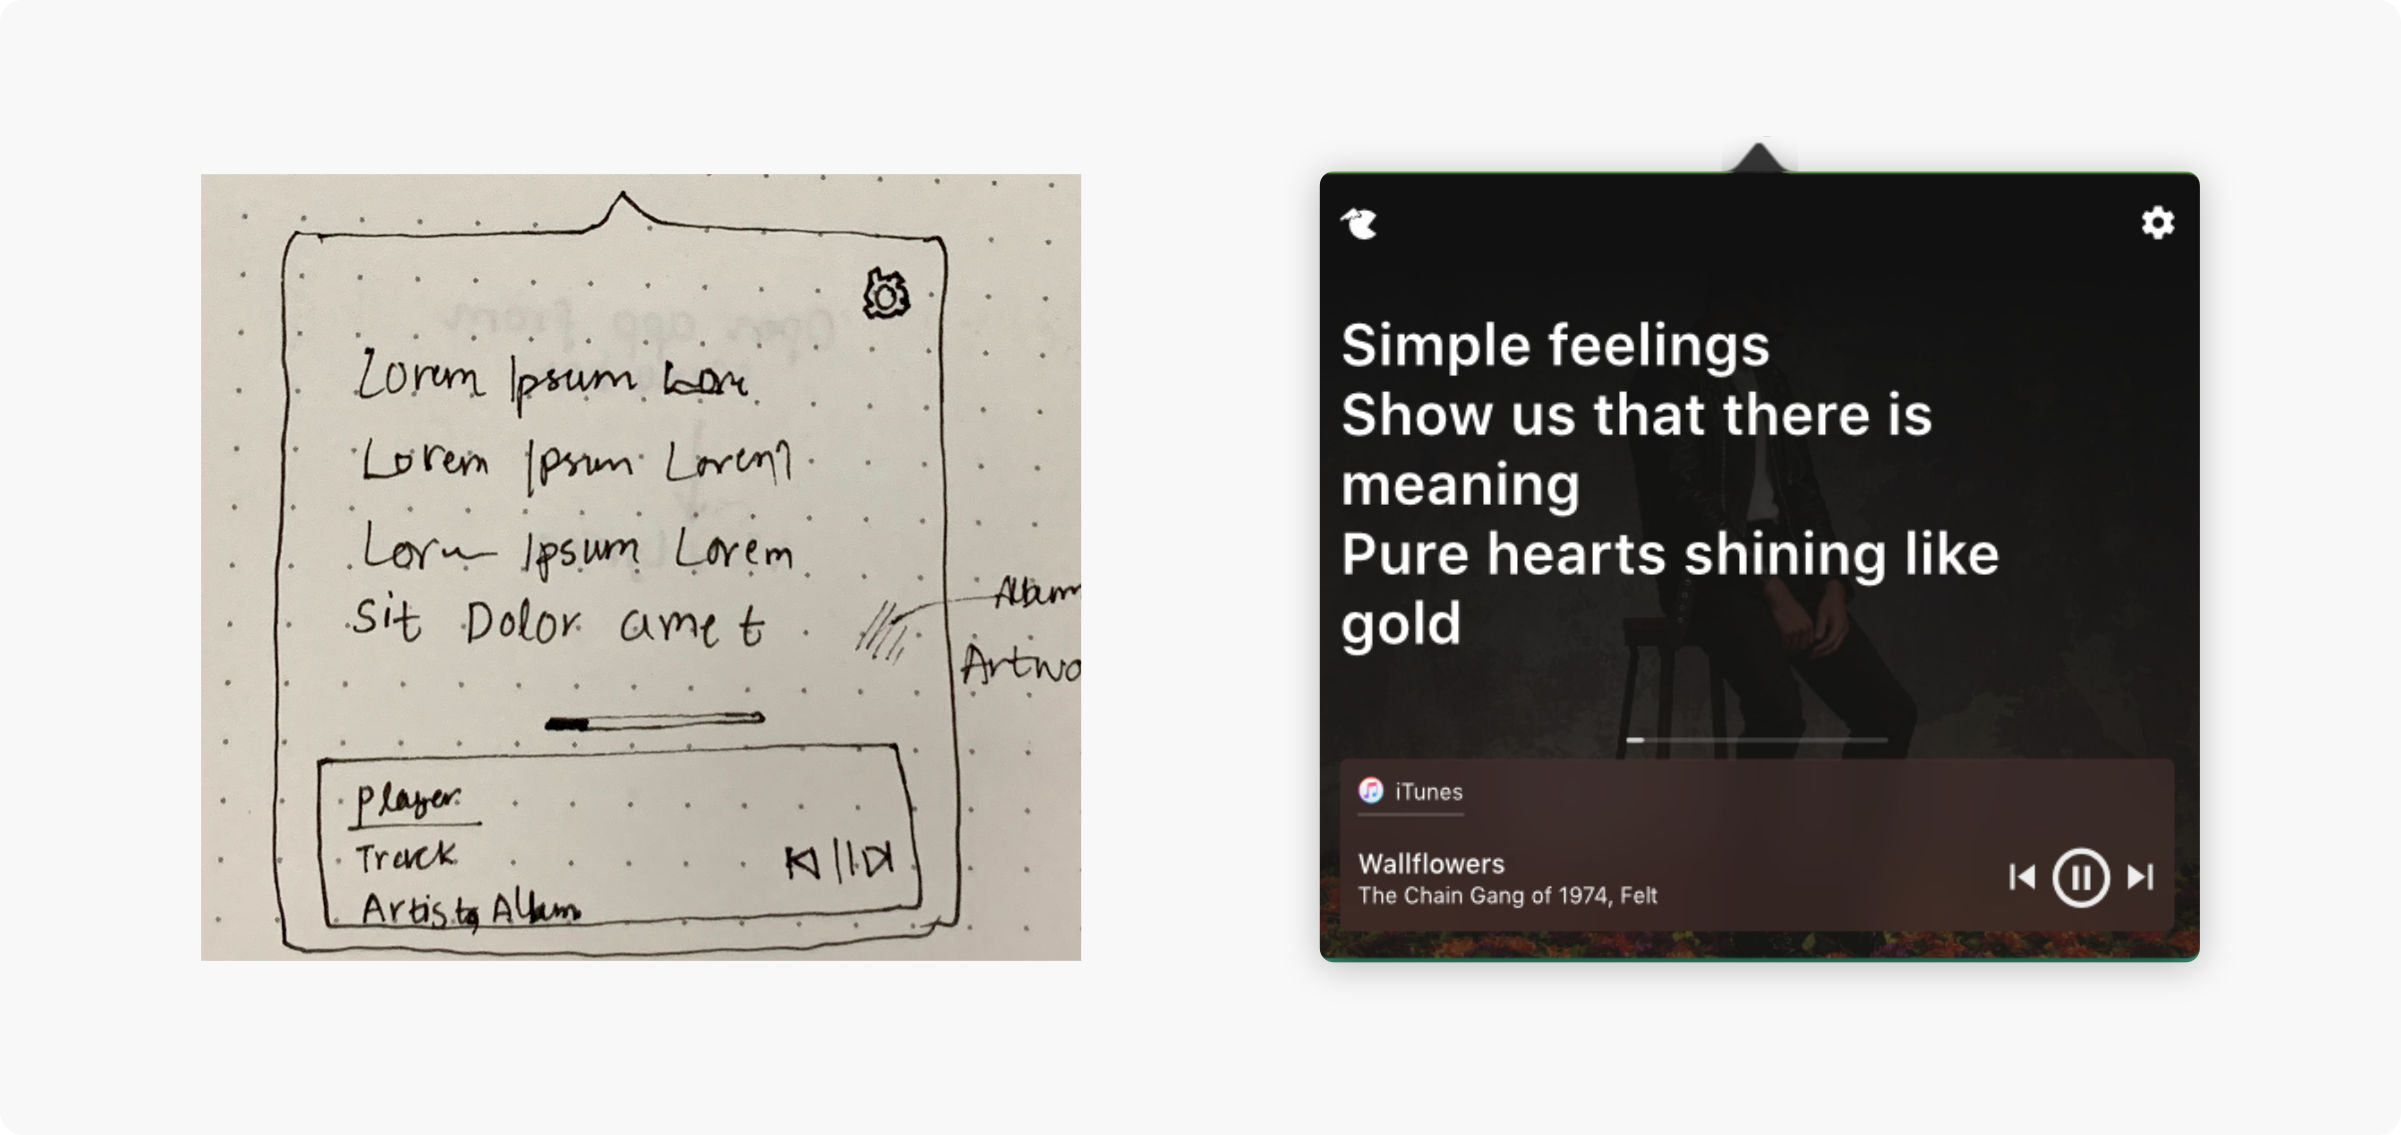 Lorem Ipsum Lore
Lorem Ipsum Lorem
Lorem Ipsum Lorem
Sit Dolor amet
Album
Artwo
Player
Track
Artist, Album
Simple feelings
Show us that there is
meaning
Pure hearts shining like
gold
iTunes
Wallflowers
The Chain Gang of 1974, Felt